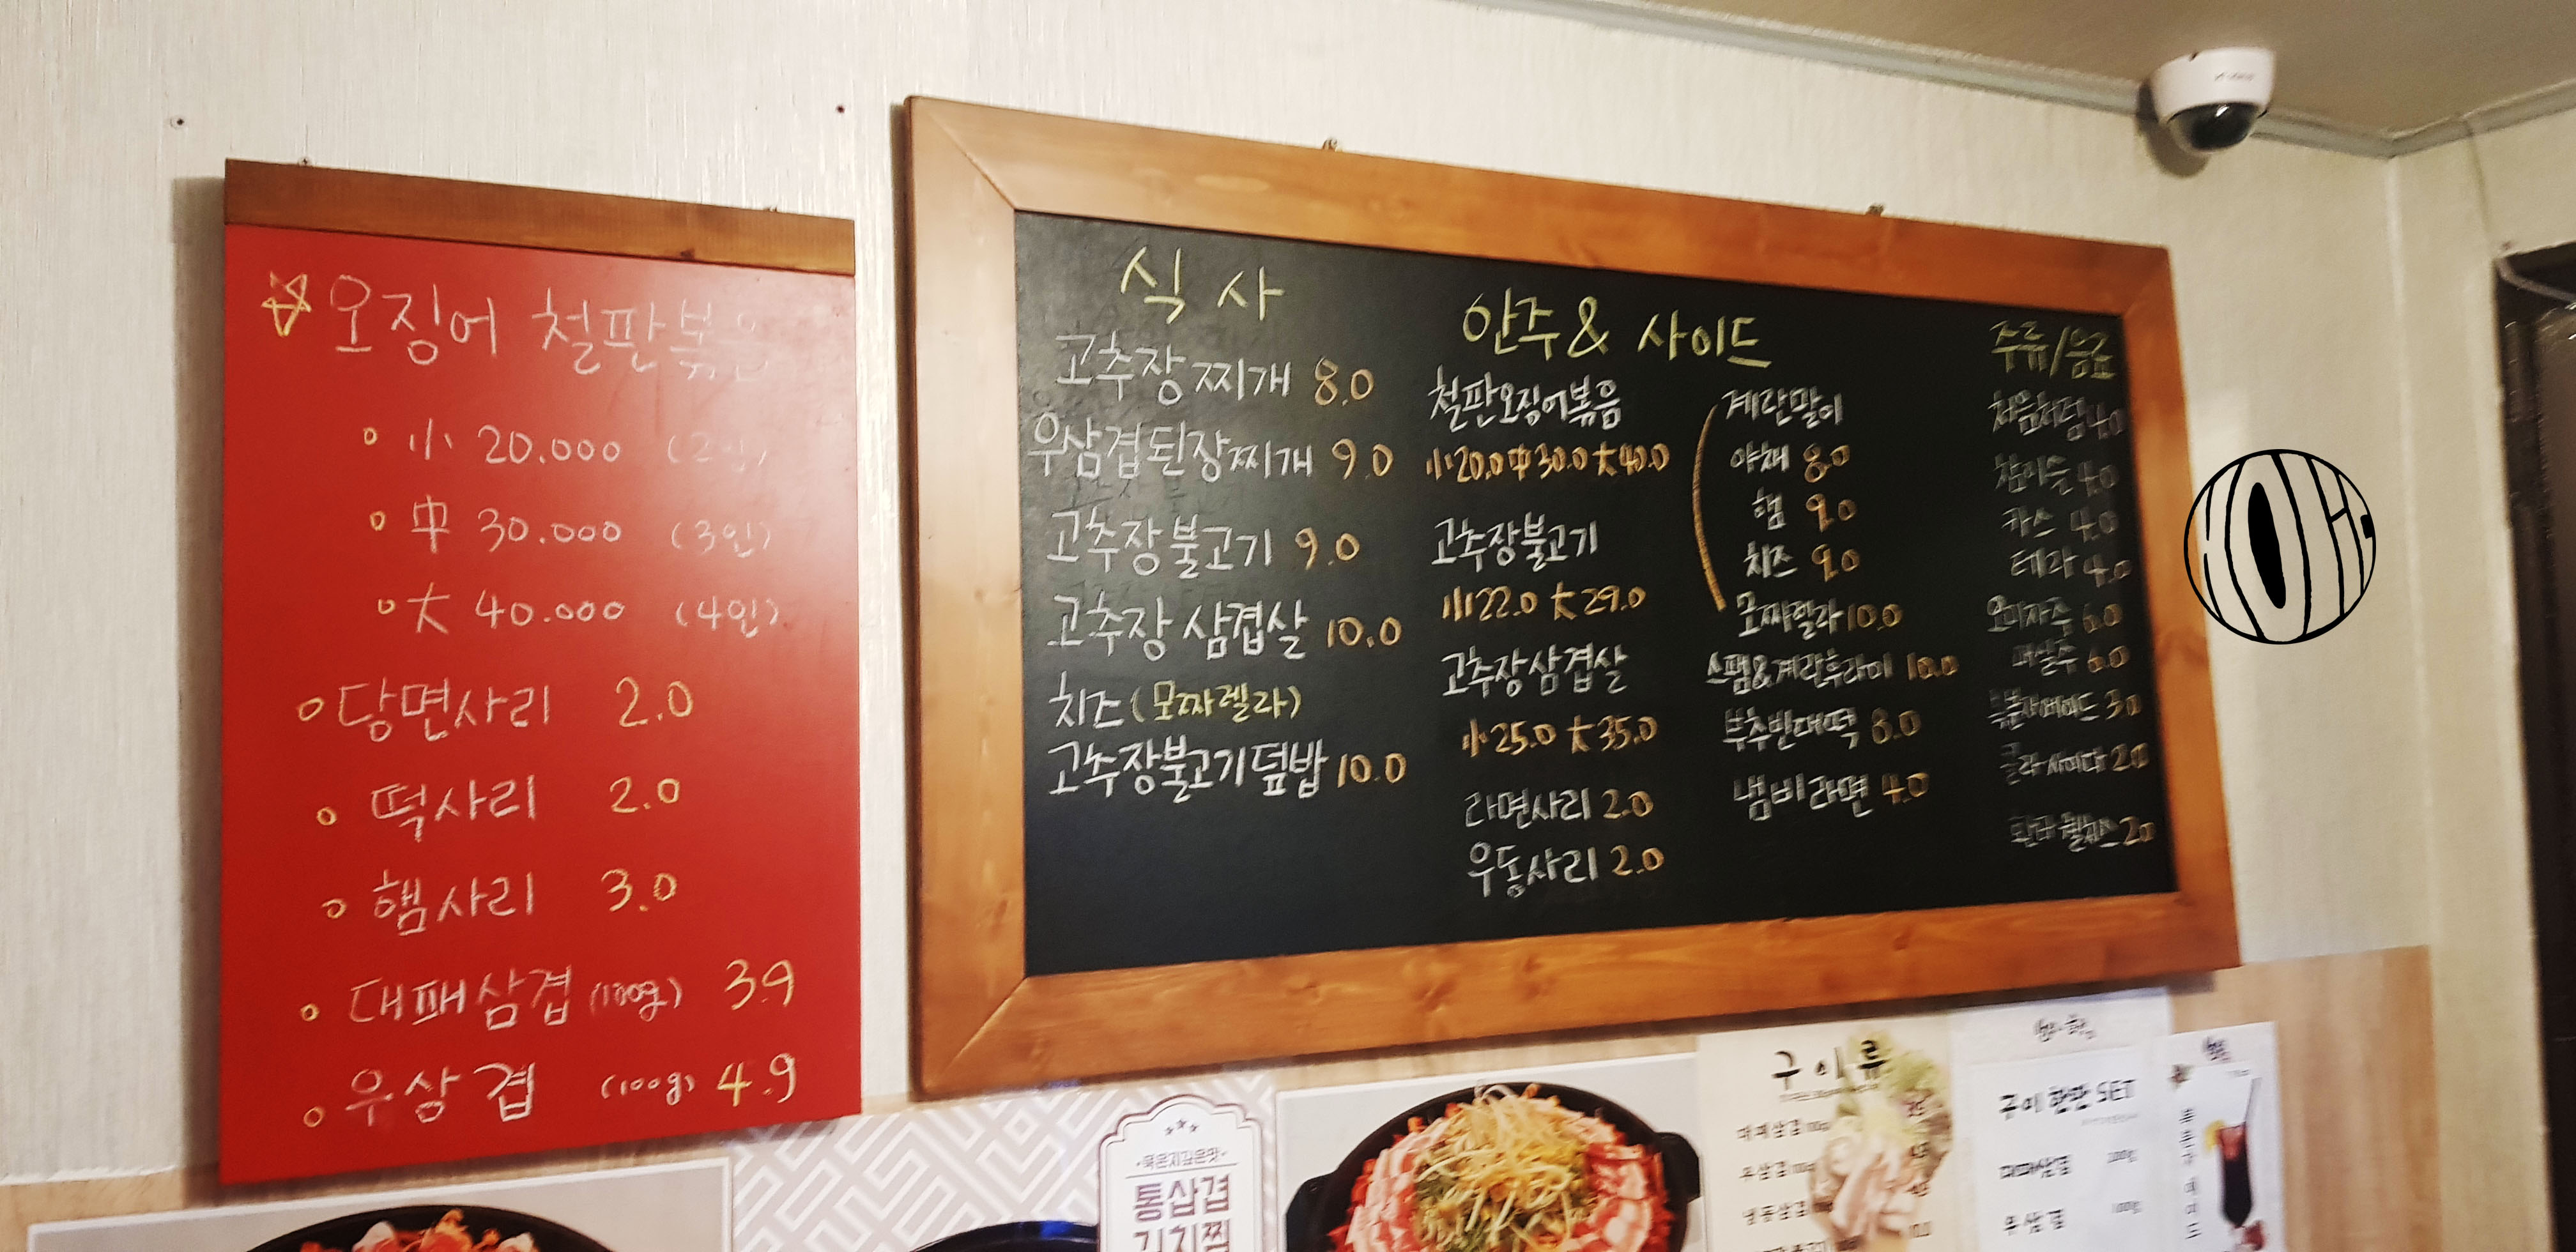 오징어 철판볶음
小 20.000 (2인)
中 30.000 (3인)
大 40.000 (4인)
당면사리 2.0
떡사리 2.0
햄사리 3.0
대패삼겹 (100g) 3.9
우삼겹 (100g) 4.9
식사
고추장찌개 8.0
우삼겹된장찌개 9.0
고추장불고기 9.0
고추장 삼겹살 10.0
치즈(모짜렐라)
고추장불고기덮밥 10.0
안주 & 사이드
철판오징어볶음
小20.0 中30.0 大40.0
고추장불고기
小22.0 大29.0
고추장삼겹살
小25.0 大35.0
라면사리 2.0
우동사리 2.0
계란말이
야채 8.0
햄 9.0
치즈 9.0
모짜렐라 10.0
스팸&계란후라이 10.0
부추빈대떡 8.0
냄비라면 4.0
주류/음료
처음처럼 4.0
참이슬 4.0
카스 4.0
테라 4.0
오미자주 6.0
매실주 6.0
복분자에이드 3.0
콜라 사이다 2.0
환타 웰치스 2.0
HOliC
묵은지깊은맛
통삼겹
김치찜
구이류
대패삼겹
우삼겹
냉동삼겹
구이 한판 SET
대패삼겹 200g
우삼겹 200g
복분자에이드